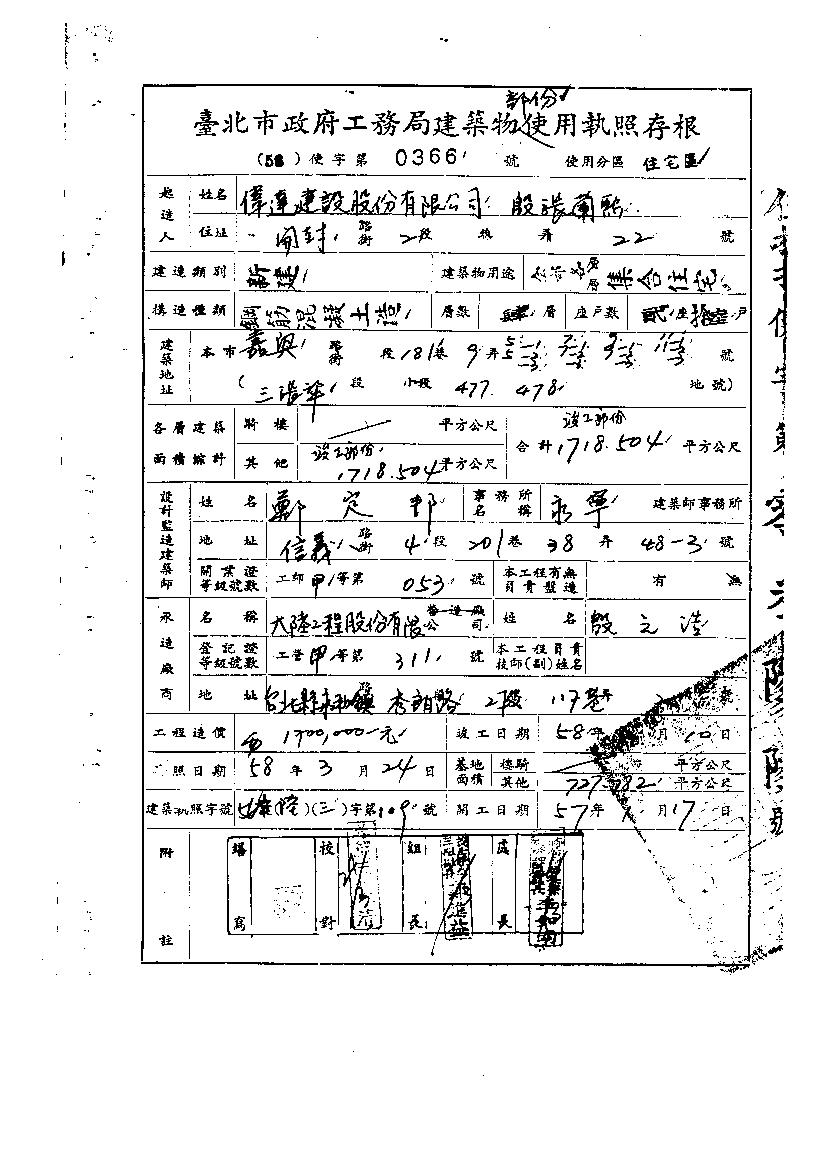 部份
臺北市政府工務局建築物使用執照存根
(58)使字第 0366 號 使用分區 住宅區
起造人 姓名 偉達建設股份有限公司 殷張蘭熙
住址 開封 路街 2段 巷 弄 22 號
建造類別 新建 建築物用途 集合住宅
構造種類 鋼筋混凝土造 層數 肆層 座戶數 貳座拾陸戶
建築地址 本市嘉興 路街 段181巷9弄 號
(三張犁 段 小段 477. 478 地號)
各層建築面積綜計 騎樓 平方公尺 竣工部份 合計1718.504 平方公尺
其他 竣工部份 1718.504 平方公尺
設計監造建築師 姓名 鄭定邦 事務所名稱 永寧 建築師事務所
地址 信義 路街 4段 201巷 38弄 48-3號
開業證等級號數 工師甲等第 053 號 本工程有無負責監造 有 無
承造廠商 名稱 大陸工程股份有限公司 營造廠 姓名 殷之浩
登記證等級號數 工營甲等第 311 號 本工程負責技師(副)姓名
地址 台北縣永和鎮 路 2段 117巷
工程造價 1700,000元 竣工日期 58年 月10日
照日期 58年3月24日 基地面積 樓騎 平方公尺
其他 727.782 平方公尺
建築執照字號 (三)字第109號 開工日期 57年 月17日
附註 繕寫 校對 組長 處長